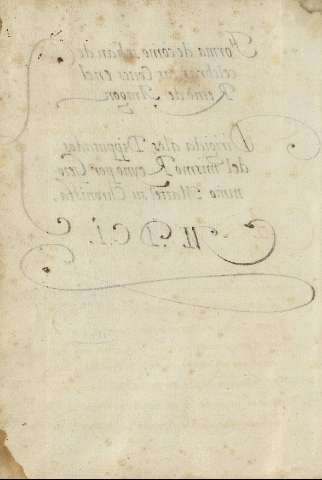 Forma de como se han de
celebrar las Cortes en el
Reino de Aragon
Dirigida a los Dipputados
del mismo Reyno por Gero
nimo Martel su Chronista.
M. D. C. I.